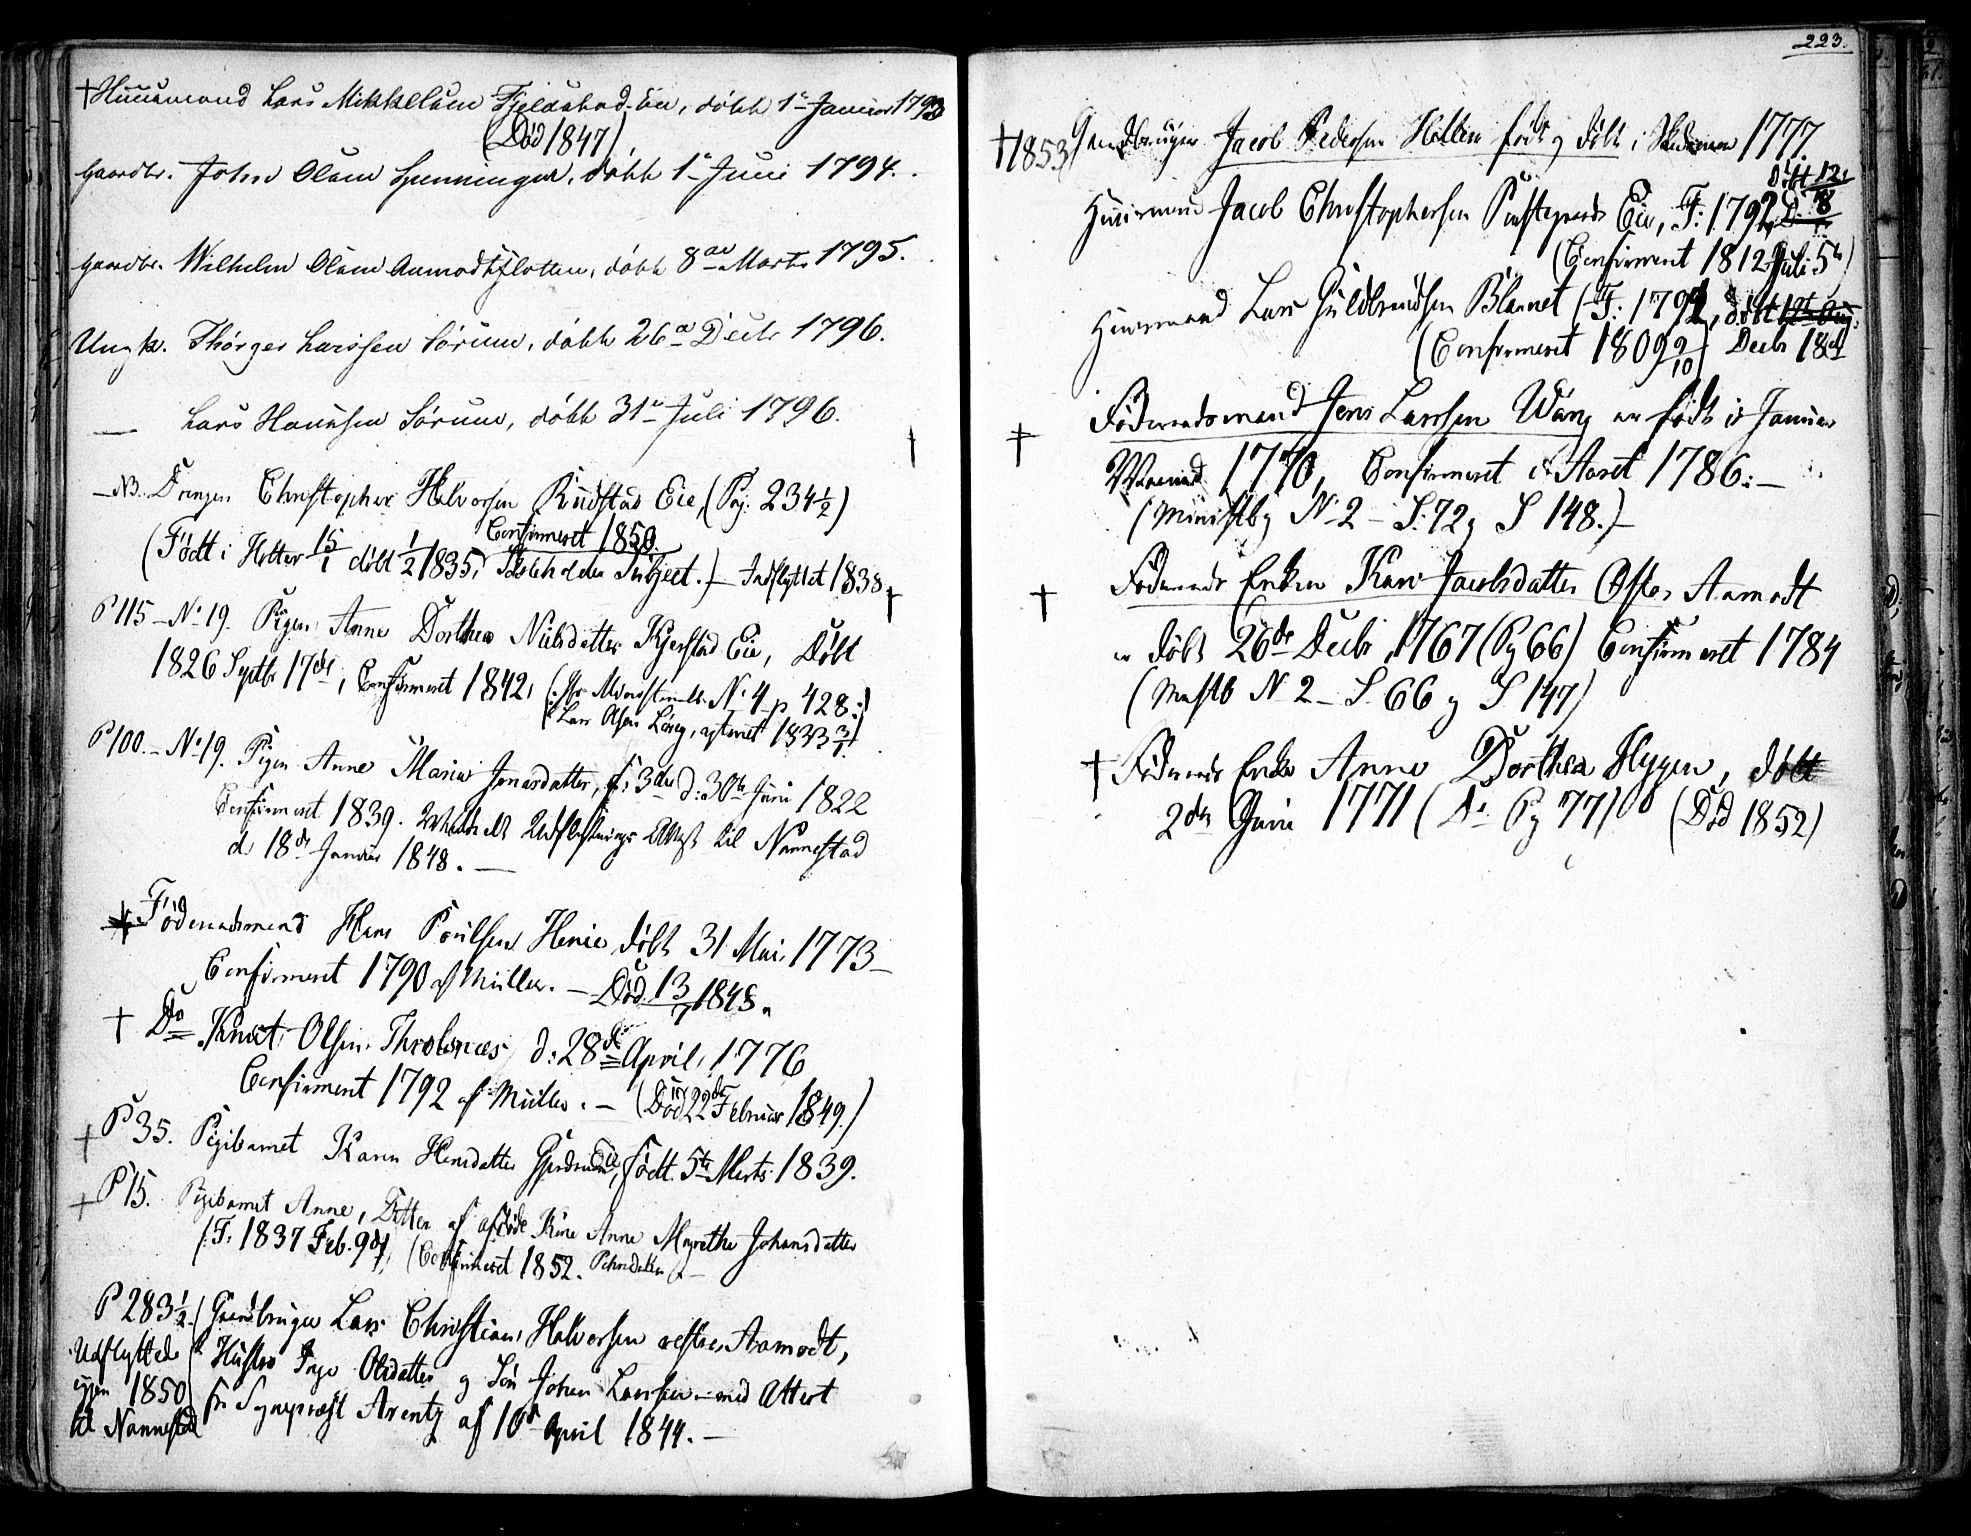 † Huusmand Lars Mikkelsen Fjeldstad-Eie, döbt 1ste Januar 1793
(Död 1847)
Gaardbr. John Olsen Spenningen, döbt 1ste Juni 1794.
Gaardbr. Wilhelm Olsen Aamodtflotten, döbt 8de Marts 1795.
Ungk. Thörger Larssen Sörum, döbt 26de Decbr 1796.
— Lars Hansen Sörum, döbt 31te Juli 1796.
NB. Drengen Christopher Halvorsen Rudstad Eie, (Pag: 234½)
Confirmeret 1850.
(Födt i Hotter 15/1 döbt 1/2 1835, Subject.) — Indflyttet 1838
P 115 — No 19. Pigen Anne Dorthea Nielsdatter Kjerstad Eie, Döbt
1826 Septbr 17de, Confirmeret 1842, No 4 p 428
Lars Olsen 1833
P 100. — No 19. Pigen Anne Maria Jonasdatter, f: 3die d: 30te Juni 1822
Confirmeret 1839. Meddelt Udflytnings Attest til Nannestad
d. 18de Januar 1848. —
† Föderaadsmand Hans Poulsen Henie döbt 31 Mai 1773 —
Confirmeret 1790 af Müller. — Död 13/7 1848.
† Do Knut Olsen Throlsnæs, d: 28de April 1776
Confirmeret 1792 af Müller. — (Död 22de Februar 1849.)
† P 35. Pigebarnet Karen Hansdatter Eie, Födt 5te Marts 1839.
† P 15. Pigebarnet Anne, Datter af afdöde Kone Anne Margrethe Johansdatter
(F: 1837 Feb. 9de, (Confirmeret 1852.
P 283½ (Gaardbruger Lars Christian Halvorsen vestre Aamodt,
Udflyttede Hustro Inge Olsdatter og Sön Johan Larssen — med Attest
igjen 1850 fr Sognepræst Arentz af 10de April 1844. —
til Nannestad
223.
† 1853 Gaardbruger Jacob Pedersen Hellen födt og döbt i 1777
döbt 12
Huusmand Jacob Christophersen Præstegaards Eie, F: 1792, D. 8
(Confirmeret 1812 Juli 5te)
Huusmand Lars Guldbrandsen Blannet (F: 1794, döbt 1ste Aug:
(Confirmeret 1809 9/10) Decbr 18de
† Föderaadsmand Jens Larssen Wæng er födt i Januar
Maaned 1770, Confirmeret i Aaret 1786. —
(Ministb N 2 — S. 72 og S 148.) —
† Föderaads Enken Kari Jacobsdatter Ofter Aamodt
er döbt 26de Decbr 1767 (Pg 66) Confirmeret 1784
(Mnstb N 2 — S. 66 og S 147)
† Föderaads Enke Anne Dorthea Hygen, döbt
2den Juni 1771 (Do Pg 77) (Död 1852)